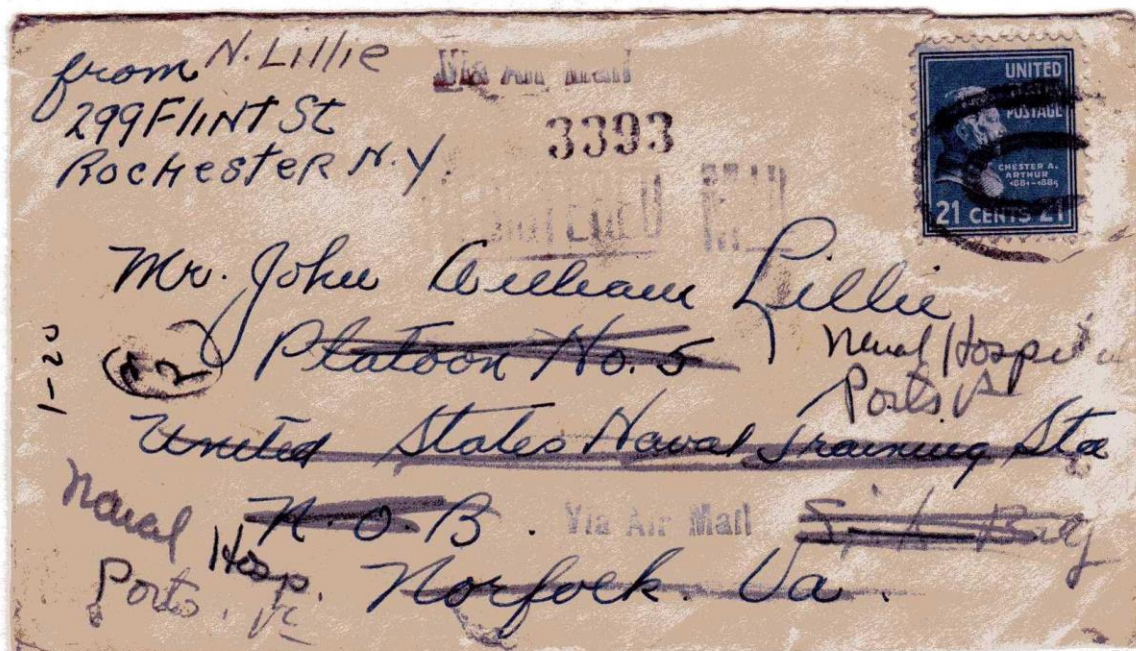 from N. Lillie
299 Flint St
Rochester N.Y.
Via Air Mail
3393
UNITED
POSTAGE
CHESTER A.
ARTHUR
1881-1885
21 CENTS 21
Mr. John William Lillie
Platoon No. 5
Naval Hospital
Ports Va
1-20
United States Naval Training Sta
N.O.B. Via Air Mail
Naval
Hosp.
Ports. Va
Norfolk. Va.